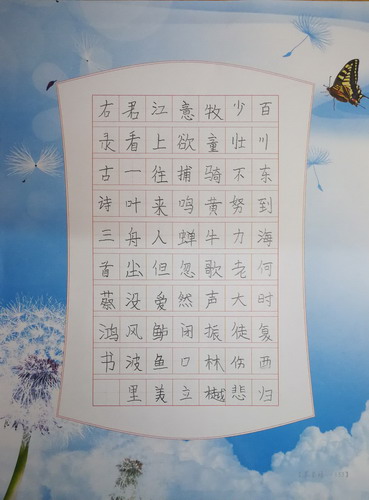 百川东到海何时复西归
少壮不努力老大徒伤悲
牧童骑黄牛歌声振林樾
意欲捕鸣蝉忽然闭口立
江上往来人但爱鲈鱼美
君看一叶舟出没风波里
右录古诗三首蔡鸿书